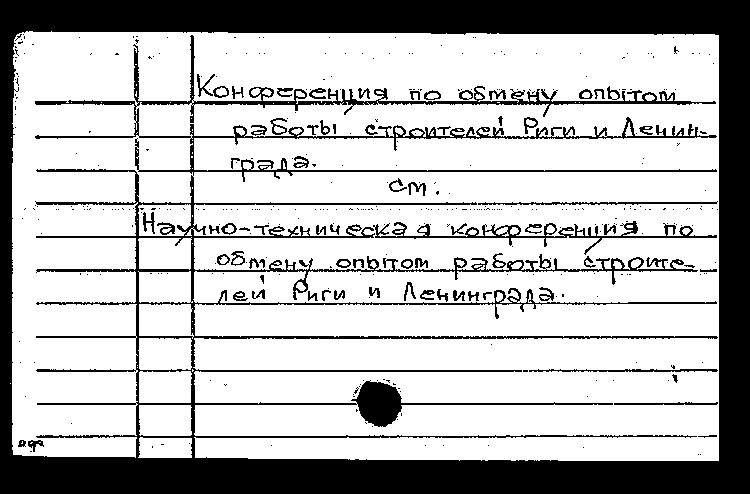 Конференция по обмену опытом
работы строителей Риги и Ленин-
града.
см.
Научно-техническая конференция по
обмену опытом работы строите-
лей Риги и Ленинграда.